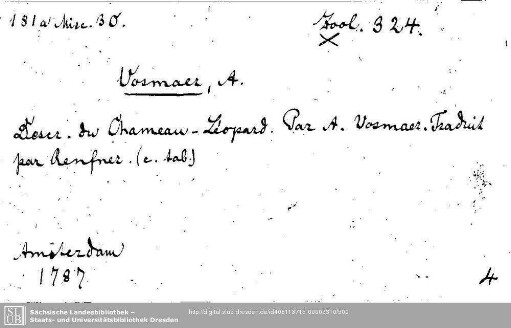 181a Misc. 30.
Zool. 324.
Vosmaer, A.
Descr. du Chameau-Léopard. Par A. Vosmaer. Traduit
par Renfner. (c. tab.)
Amsterdam
1787
4
Sächsische Landesbibliothek –
Staats- und Universitätsbibliothek Dresden